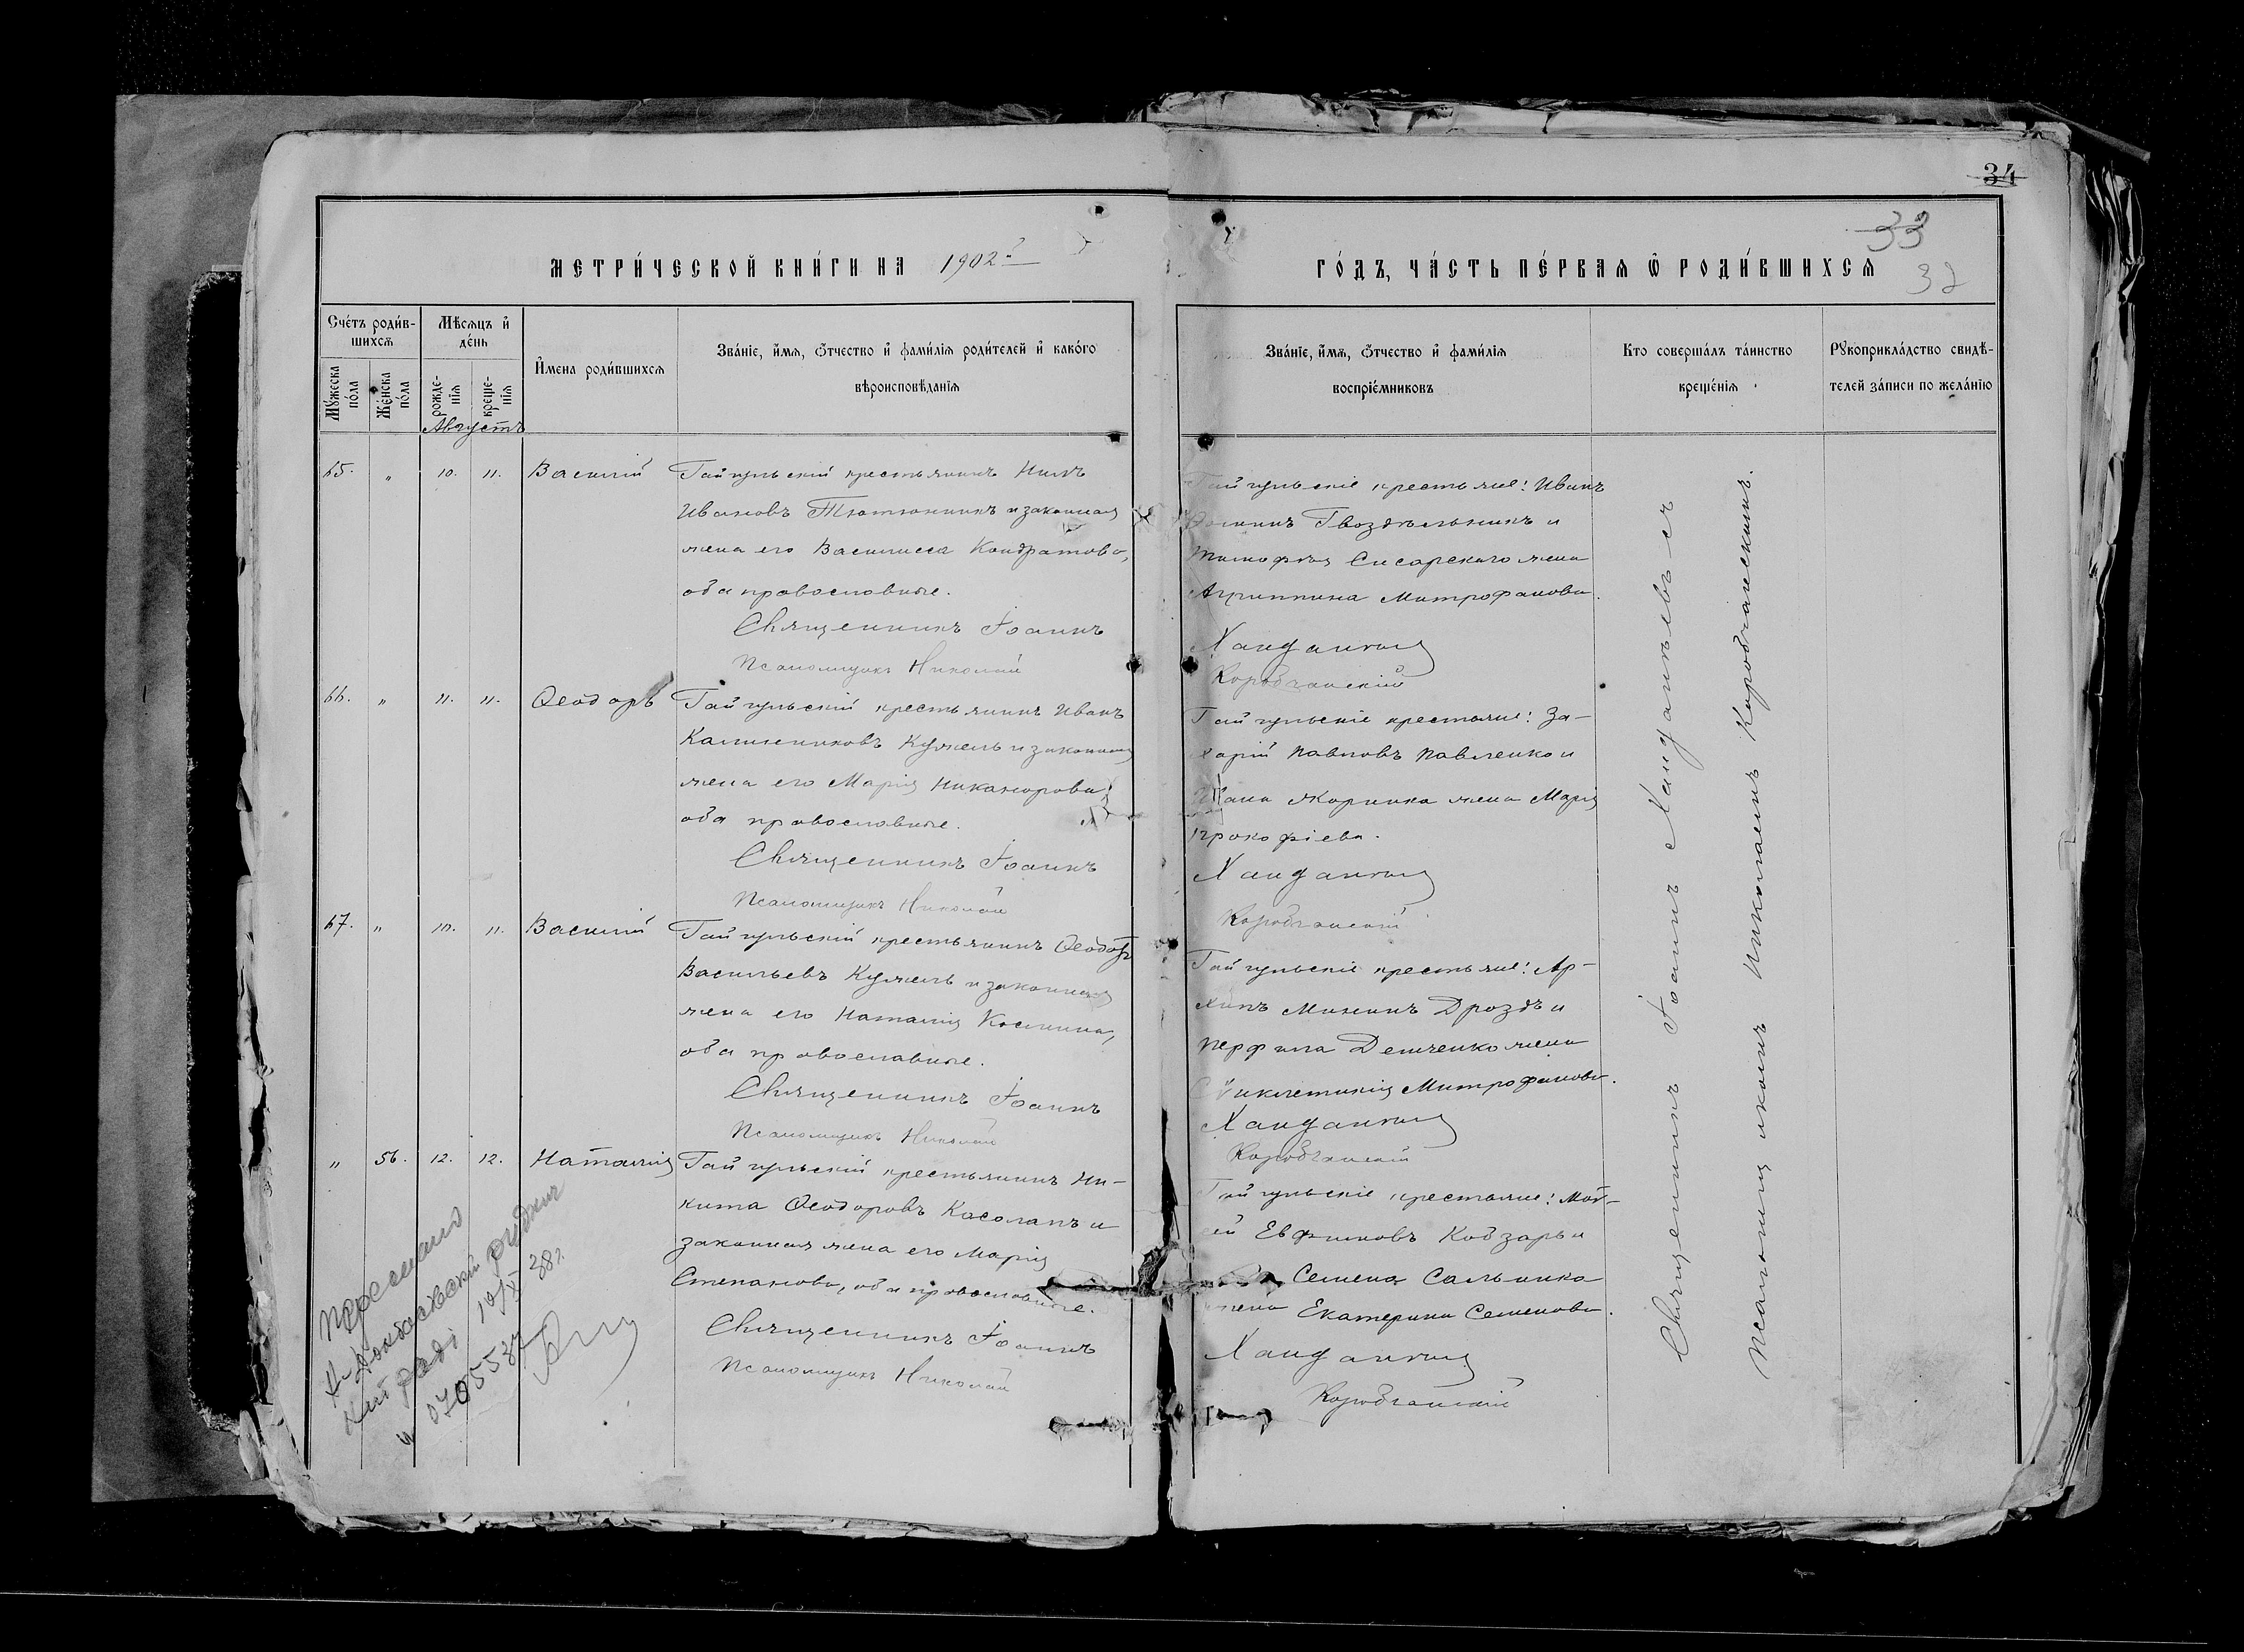 34
33
32
МЕТРИ́ЧЕСКОЙ КНИ́ГИ НА 1902й
ГО́ДЪ, ЧА́СТЬ ПЕ́РВАЯ Ѽ РОДИ́ВШИХСѦ
Сче́тъ роди́в-
шихсѧ
Мꙋ́жеска по́ла
Же́нска по́ла
Мѣ́сѧцъ и҆ де́нь
рожде-нїѧ
креще-нїѧ
Августъ
И҆мена роди́вшихсѧ
Зва́нїе, и҆́мѧ, ѻ҆́тчество и҆ фами́лїѧ роди́телей и҆ како́гѡ
вѣроисповѣ́данїѧ
Зва́нїе, и҆́мѧ, ѻ҆́тчество и҆ фами́лїѧ
воспрїе́мниковъ
Кто соверша́лъ та́инство
креще́нїѧ
Рꙋкоприкла́дство свидѣ́-
телей за́писи по жела́нїю
65. " 10. 11. Василій
Гайчульскій крестьянинъ Нилъ
Ивановъ Тютюнникъ и законная
жена его Василисса Кондратова,
оба православные.
Священникъ Іоаннъ
Псаломщикъ Николай
Гайчульскіе крестьяне: Иванъ
Гвоздѣльникъ и
Тимофея Сисарскаго жена
Агриппина Митрофанова.
Хандалѣевъ
Коробчанскій
66. " 11. 11. Ѳеодоръ
Гайчульскій крестьянинъ Иванъ
Каллиниковъ Кужель и законная
жена его Марія Никанорова,
оба православные.
Священникъ Іоаннъ
Псаломщикъ Николай
Гайчульскіе крестьяне: За-
харій Павловъ Павленко и
Ивана жена Марія
Прокофіева.
Коробчанскій
67. " 10. 11. Василій
Гайчульскій крестьянинъ Ѳеодоръ
Васильевъ Кужель и законная
жена его Наталія Космина,
оба православные.
Священникъ Іоаннъ
Псаломщикъ Николай
Гайчульскіе крестьяне: Ар-
хипъ Мининъ Дроздъ и
Перфила Демченко жена
Синклетикія Митрофанова.
Коробчанскій
" 56. 12. 12. Наталія
Гайчульскій крестьянинъ Ни-
кита Ѳеодоровъ Касолапъ и
законная жена его Марія
Степанова, оба православные.
Священникъ Іоаннъ
Псаломщикъ Николай
Гайчульскіе крестьяне: Мои-
сей Евфимовъ Кобзарь и
Семена Сальника
жена Екатерина Семенова.
Коробчанскій
Священникъ Іоаннъ съ
Псаломщикомъ Николаемъ Коробчанскимъ.
10/X 38 г.